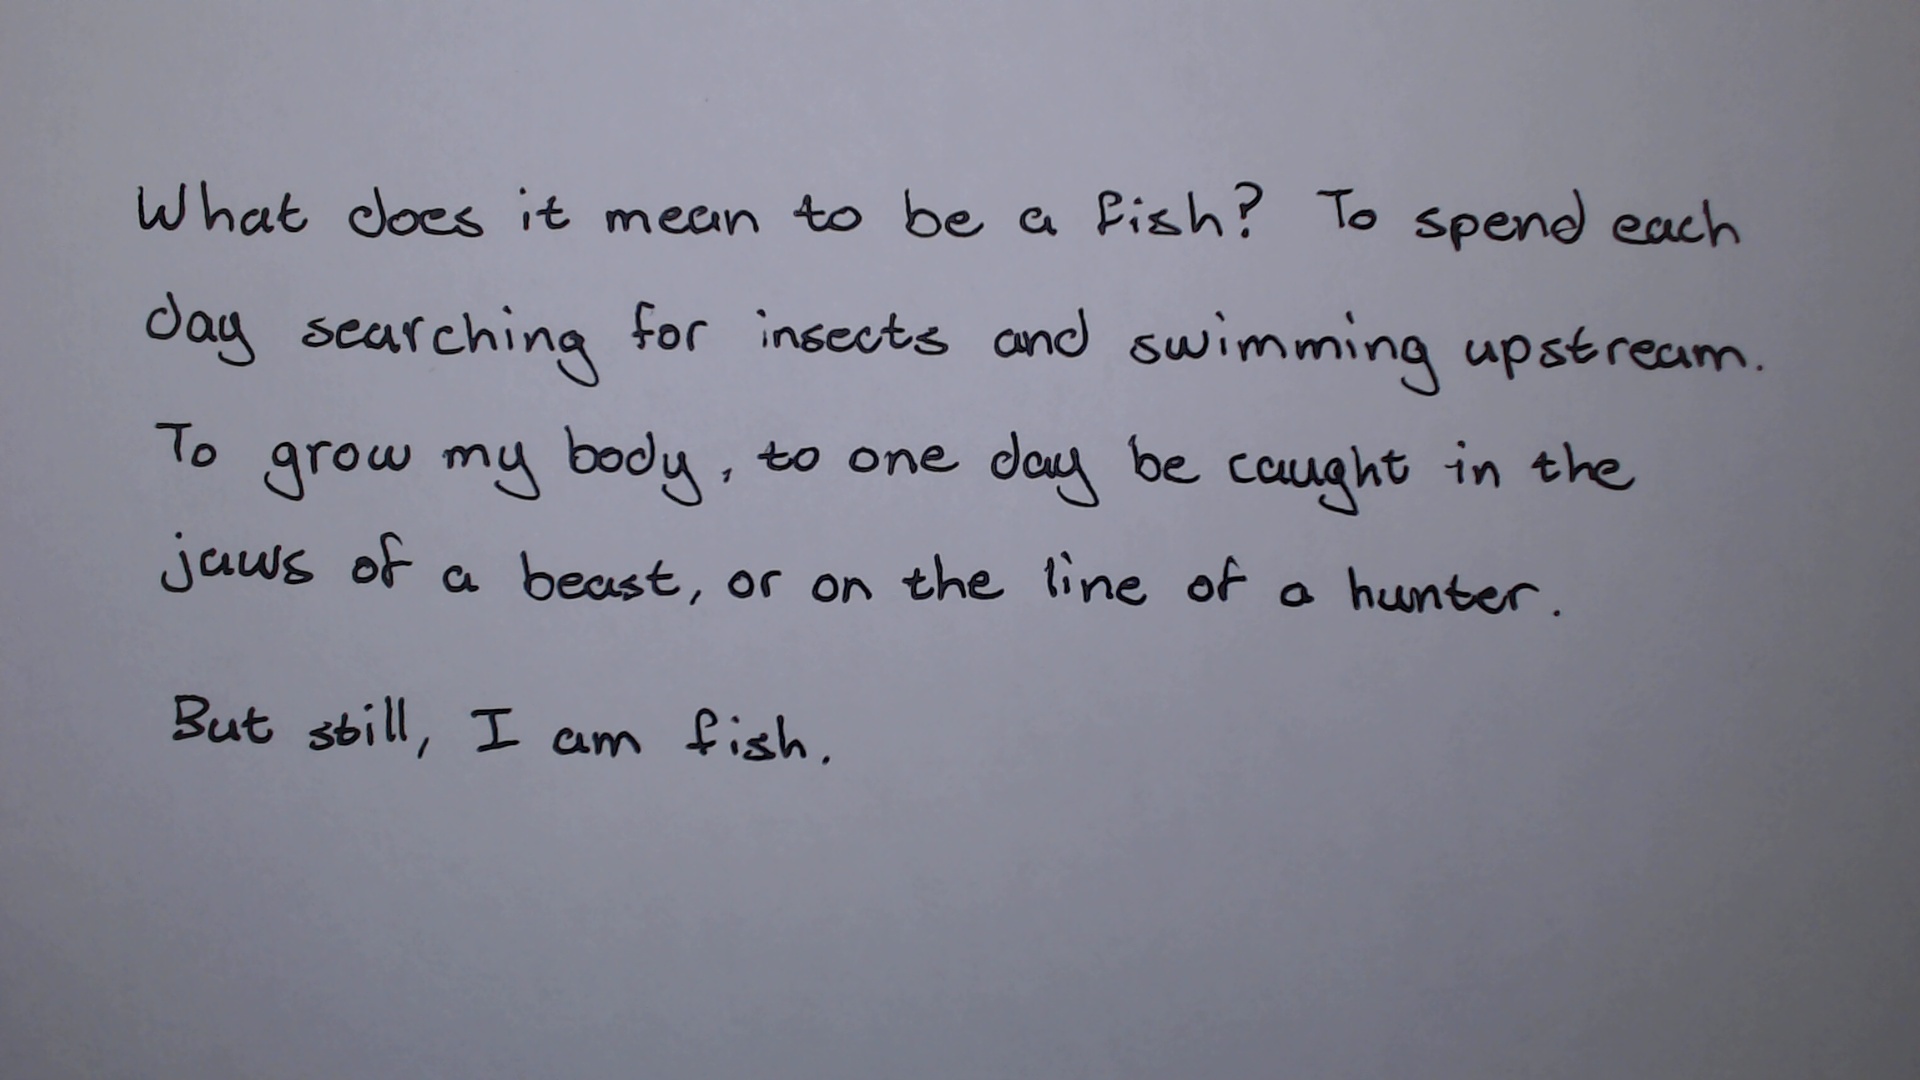 What does it mean to be a fish? To spend each
day searching for insects and swimming upstream.
To grow my body, to one day be caught in the
jaws of a beast, or on the line of a hunter.
But still, I am fish.